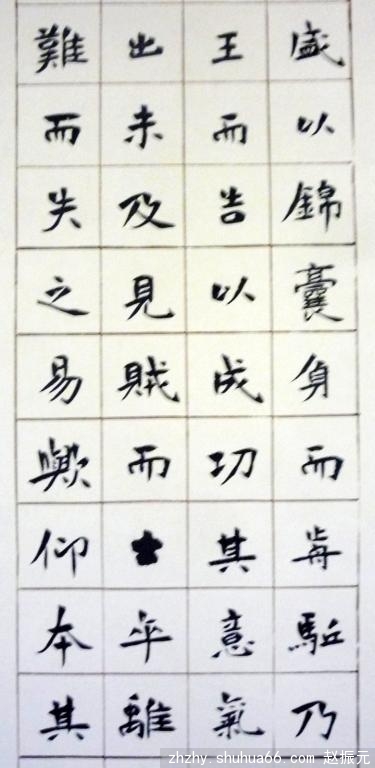 盛以錦囊負而歬駈乃
王而告以成功其意氣
出未及見賊而卒離
難而失之易歟仰本其
zhzhy.shuhua66.com 赵振元